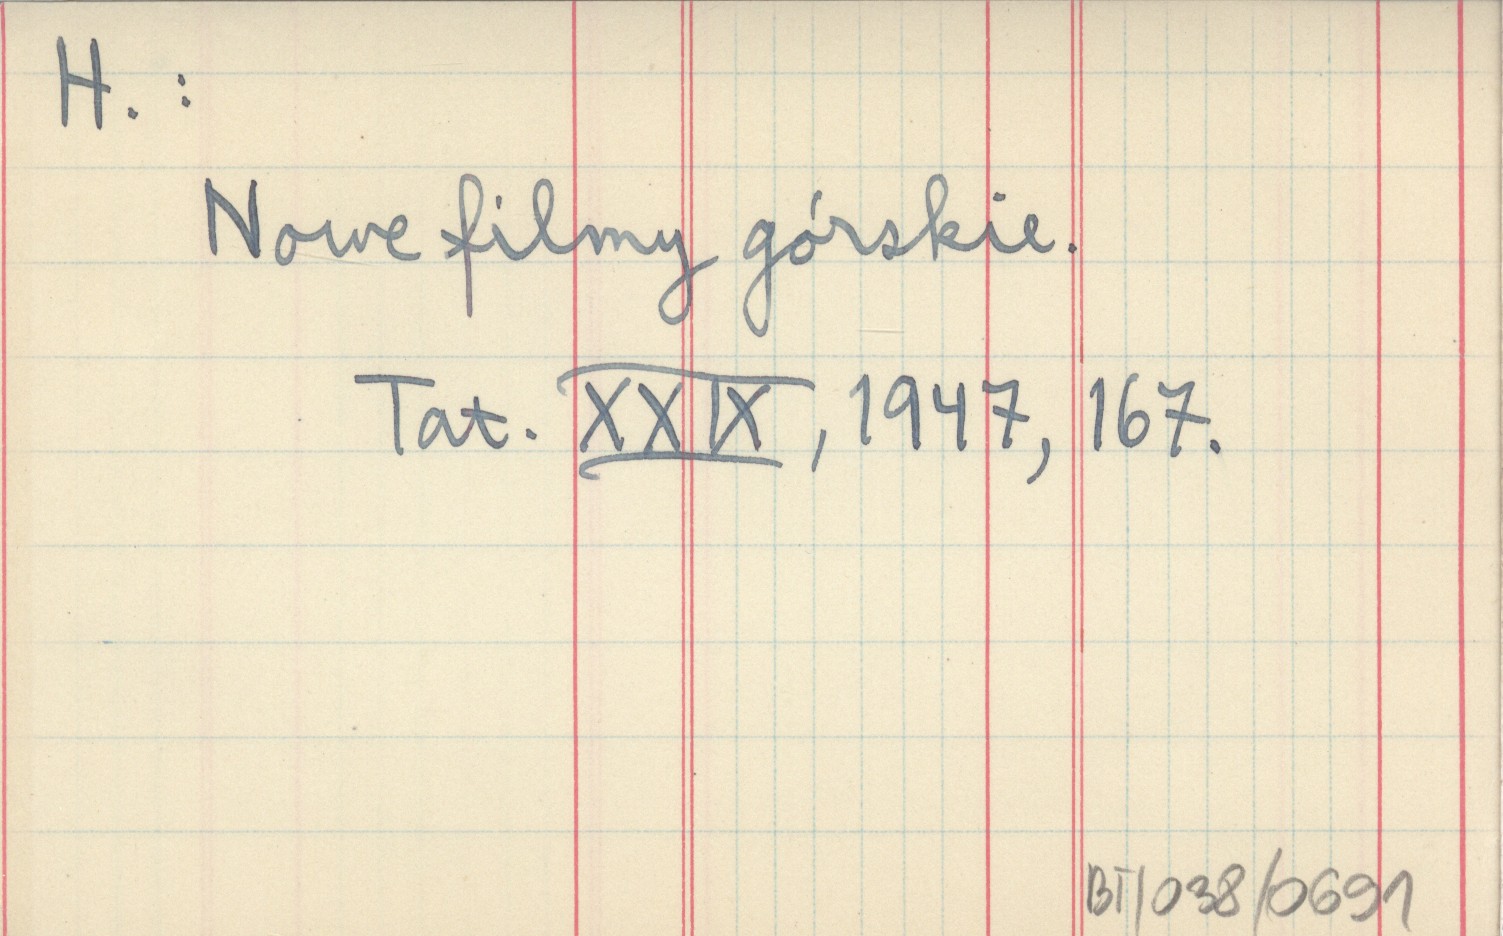 H. :
Nowe filmy górskie.
Tat. XXIX, 1947, 167.
BT/038/0691